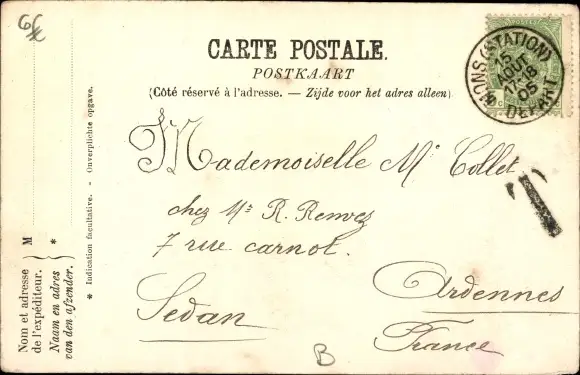 CARTE POSTALE.
POSTKAART
(Côté réservé à l'adresse. — Zijde voor het adres alleen)
MONS (STATION)
15
AOUT
17-18
05
DEPART
Mademoiselle M. Collet
chez Mr R. Renvez
7 rue carnot.
Sedan
Ardennes
France
T
B
Nom et adresse
de l'expéditeur.
Naam en adres
van den afzender.
} M
} *
* Indication facultative. - Onverplichte opgave.